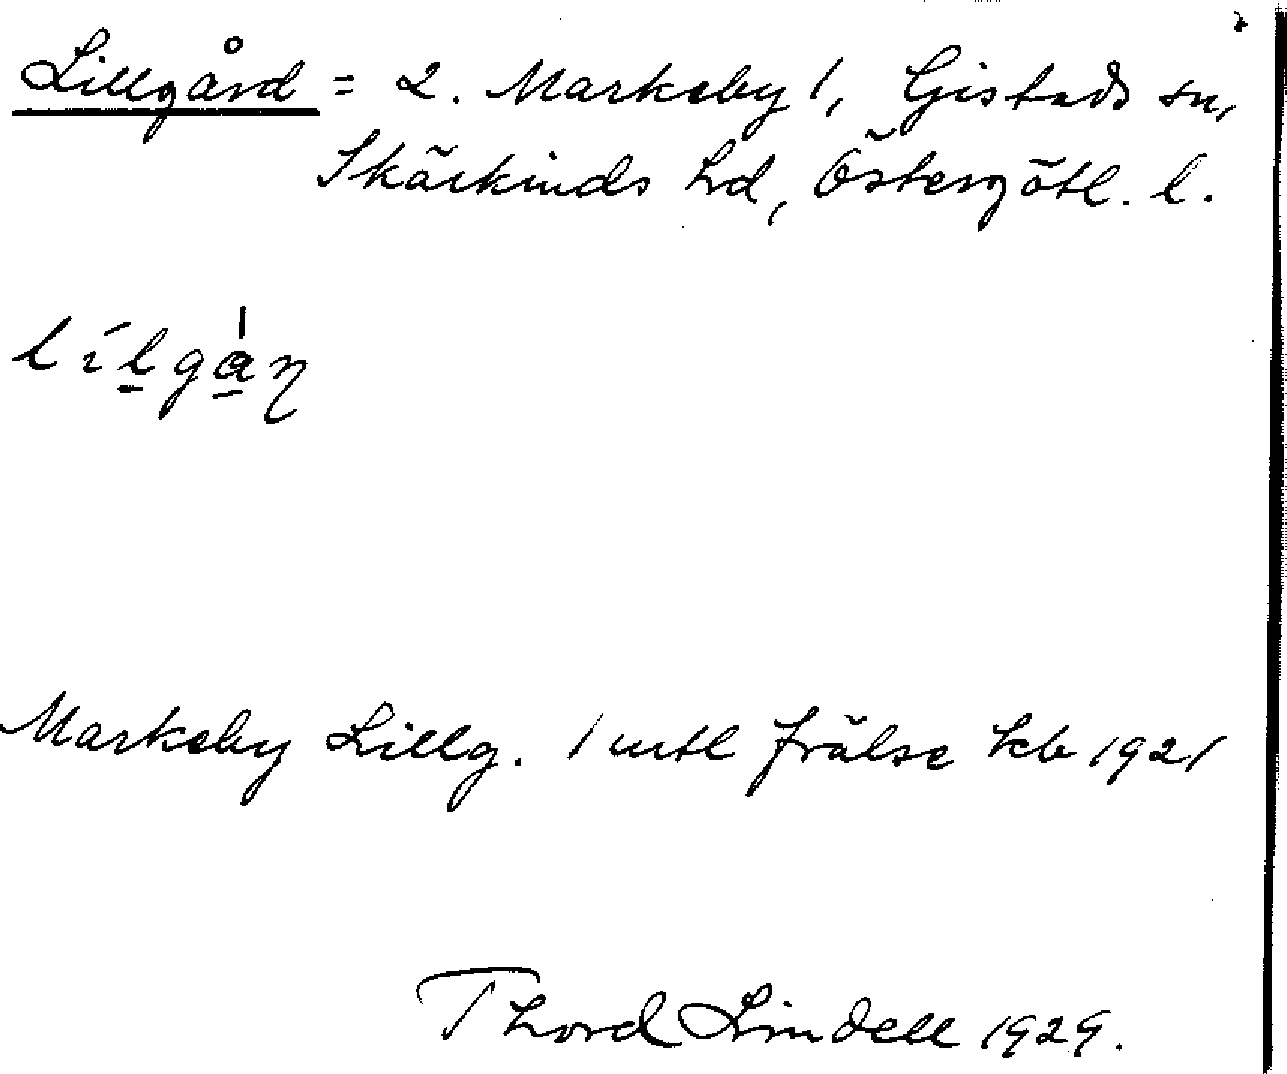 Lillgård = 2. Markeby 1, Gistads sn,
Skärkinds hd, Östergötl. l.
Markeby Lillg. 1 mtl frälse kb 1921
Thord Lindell 1929.